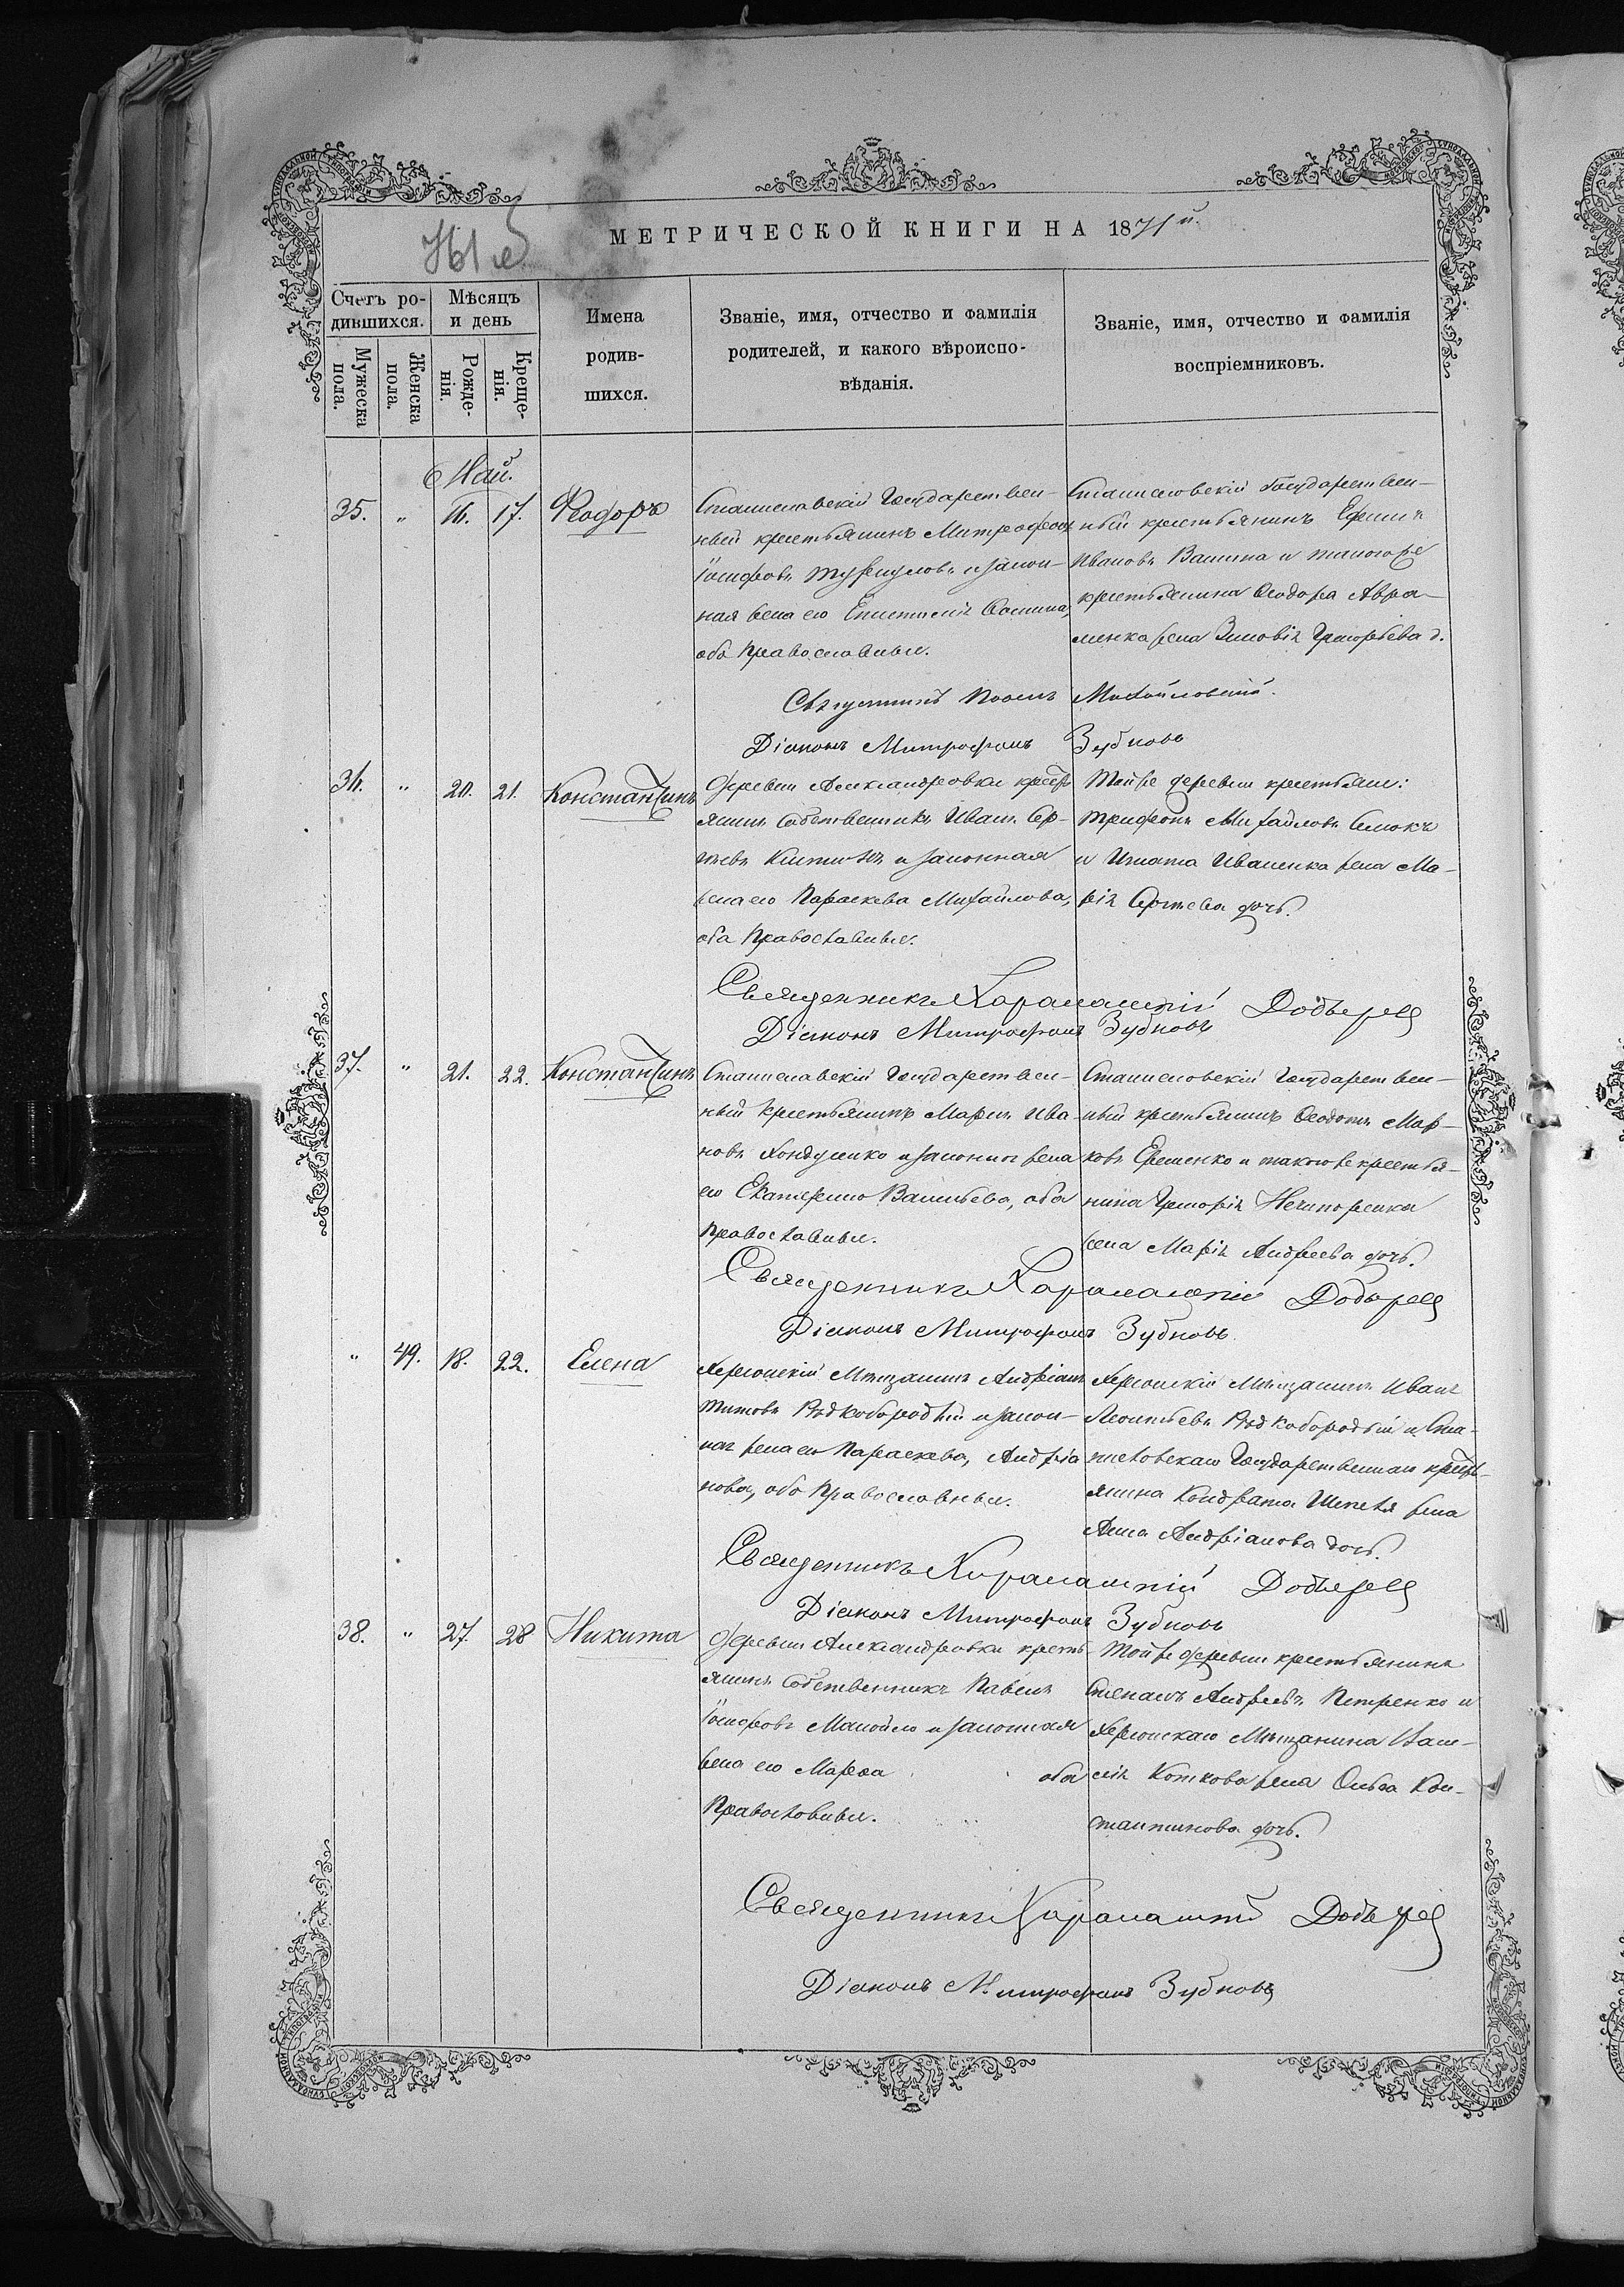 МЕТРИЧЕСКОЙ КНИГИ НА 1871й.
Счетъ родившихся.
Мѣсяцъ и день
Имена родившихся.
Званіе, имя, отчество и фамилія родителей, и какого вѣроисповѣданія.
Званіе, имя, отчество и фамилія воспріемниковъ.
Мужеска пола.
Женска пола.
Рожденія.
Крещенія.
Май.
35. " 16. 17. Ѳеодоръ
Станиславскій Государствен-
ный крестьянинъ Митрофанъ
Іосифовъ и закон-
ная жена его Епистимія
оба Православные.
Станиславскій Государствен-
ный крестьянинъ Ефимъ
Ивановъ и такогоже
крестьянина Ѳеодора Авра-
менка жена Зиновія Григорьева д.
Священникъ Павелъ Михайловскій.
Діаконъ Митрофанъ Зубковъ
36. " 20. 21. Константинъ
Деревни Александровки кресть-
янинъ собственникъ Иванъ Сер-
гѣевъ и законная
жена его Параскева Михайлова,
оба Православные.
Тойже деревни крестьяне:
Трифонъ Михайловъ
и Игната Иваненка жена Ма-
рія Сергѣева дочь.
Священникъ Харалампій
Діаконъ Митрофанъ Зубковъ
37. " 21. 22. Константинъ
Станиславскій Государствен-
ный крестьянинъ Ива-
новъ и законная жена
его Екатерина Васильева, оба
Православные.
Станиславскій Государствен-
ный крестьянинъ Ѳеодотъ Мар-
ковъ Еременко и такогоже крестья-
нина Григорія Нечипоренка
жена Марія Андреева дочь.
Священникъ Харалампій
Діаконъ Митрофанъ Зубковъ
" 49. 18. 22. Елена
Херсонскій Мѣщанинъ Андріанъ
Титовъ Рѣдкобородый и закон-
ная жена его Параскева, Андріа
нова, оба Православные.
Херсонскій Мѣщанинъ Иванъ
Леонтьевъ Рѣдкобородый и Ста-
ниславскаго Государственнаго кресть-
янина Кондрата жена
Анна Андріанова дочь.
Священникъ Харалампій
Діаконъ Митрофанъ Зубковъ
38. " 27. 28 Никита
Деревни Александровки кресть-
янинъ собственникъ Павелъ
Іосифовъ Манойло и законная
жена его Марѳа оба
Православные.
Тойже деревни крестьянинъ
Степанъ Андреевъ Петренко и
Херсонскаго Мѣщанина Васи-
лія Коткова жена Ольга Кон-
стантинова дочь.
Священникъ Харалампій
Діаконъ Митрофанъ Зубковъ